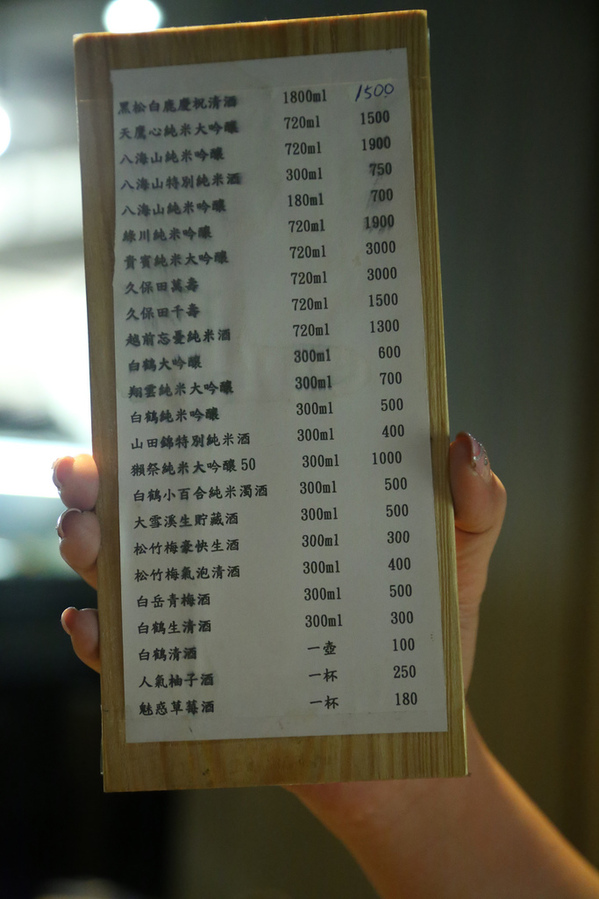 黑松白鹿慶祝清酒 1800ml 1500
天鷹心純米大吟釀 720ml 1500
八海山純米吟釀 720ml 1900
八海山特別純米酒 300ml 750
八海山純米吟釀 180ml 700
綠川純米吟釀 720ml 1900
貴賓純米大吟釀 720ml 3000
久保田萬壽 720ml 3000
久保田千壽 720ml 1500
越前忘憂純米酒 720ml 1300
白鶴大吟釀 300ml 600
翔雲純米大吟釀 300ml 700
白鶴純米吟釀 300ml 500
山田錦特別純米酒 300ml 400
獺祭純米大吟釀50 300ml 1000
白鶴小百合純米濁酒 300ml 500
大雪溪生貯藏酒 300ml 500
松竹梅豪快生酒 300ml 300
松竹梅氣泡清酒 300ml 400
白岳青梅酒 300ml 500
白鶴生清酒 300ml 300
白鶴清酒 一壺 100
人氣柚子酒 一杯 250
魅惑草莓酒 一杯 180